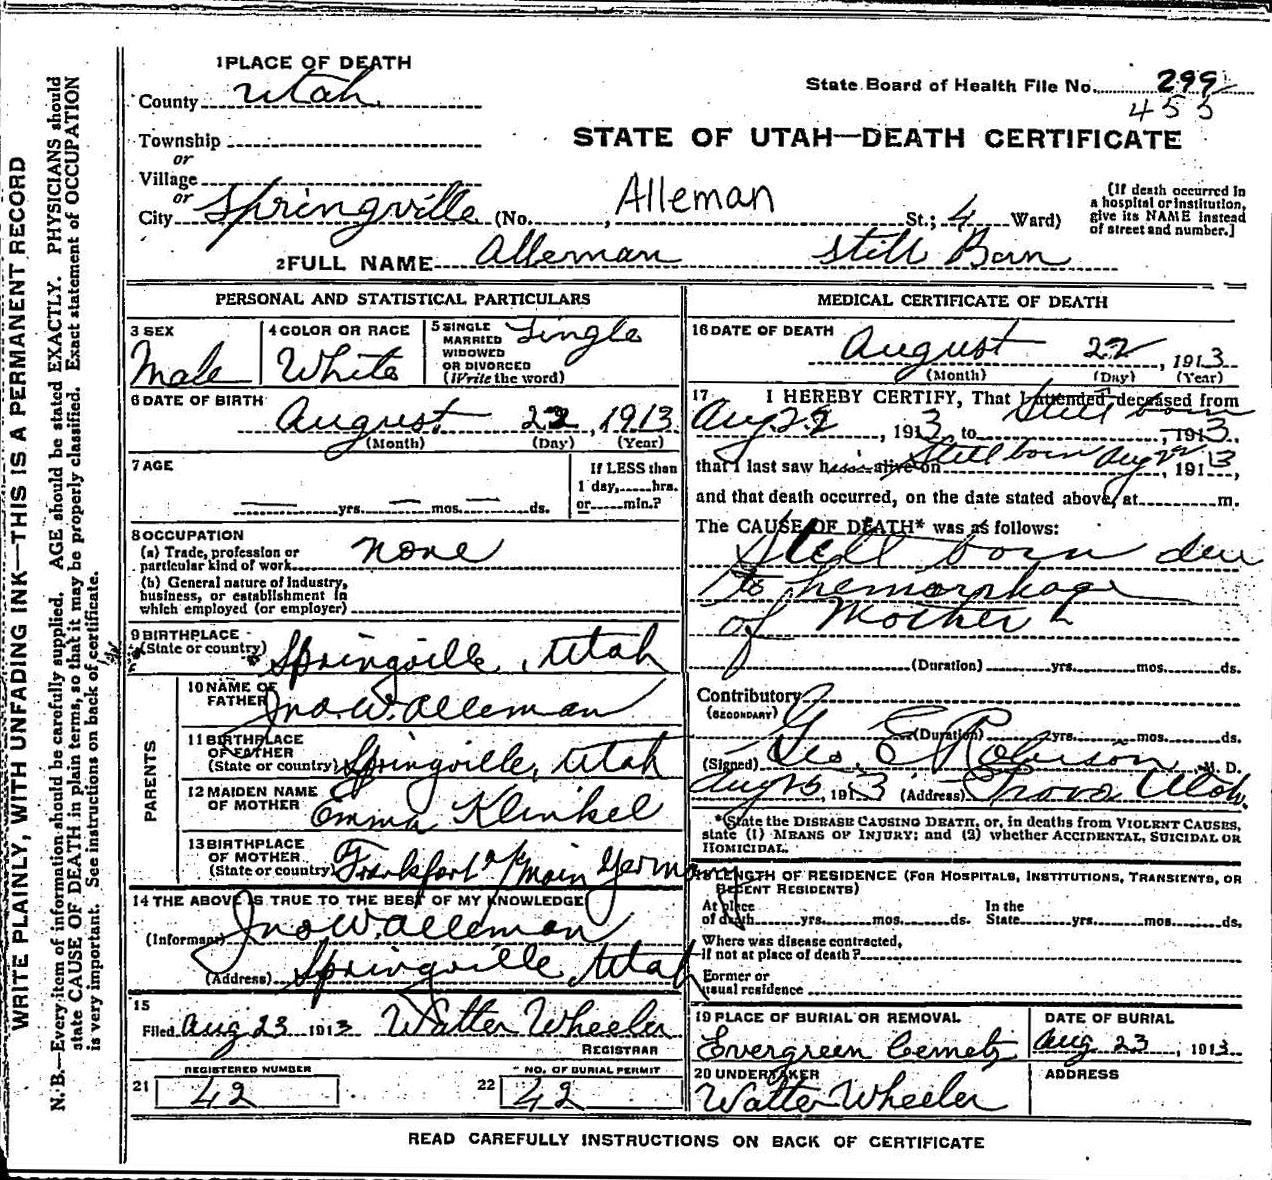 1 PLACE OF DEATH
County Utah
State Board of Health File No. 299
455
Township
or
STATE OF UTAH—DEATH CERTIFICATE
Village
or
City Springville (No. , Alleman St.; 4 Ward)
(If death occurred in
a hospital or institution,
give its NAME instead
of street and number.]
2 FULL NAME Alleman Still Born
PERSONAL AND STATISTICAL PARTICULARS
3 SEX
Male
4 COLOR OR RACE
White
5 SINGLE
MARRIED
WIDOWED
OR DIVORCED
(Write the word)
Single
6 DATE OF BIRTH
August 22, 1913
(Month) (Day) (Year)
7 AGE
yrs. mos. ds.
If LESS than
1 day, hrs.
or min.?
8 OCCUPATION
(a) Trade, profession or
particular kind of work none
(b) General nature of Industry,
business, or establishment in
which employed (or employer)
9 BIRTHPLACE
(State or country) Springville, Utah
PARENTS
10 NAME OF
FATHER Jno. W. Alleman
11 BIRTHPLACE
OF FATHER
(State or country) Springville, Utah
12 MAIDEN NAME
OF MOTHER Emma Klinkel
13 BIRTHPLACE
OF MOTHER
(State or country) Frankfort Main Germany
14 THE ABOVE IS TRUE TO THE BEST OF MY KNOWLEDGE
(Informant) Jno W. Alleman
(Address) Springville, Utah
15
Filed Aug 23 1913 Walter Wheeler
REGISTRAR
REGISTERED NUMBER
21 42
NO. OF BURIAL PERMIT
22 42
MEDICAL CERTIFICATE OF DEATH
16 DATE OF DEATH
August 22, 1913
(Month) (Day) (Year)
17 I HEREBY CERTIFY, That I attended deceased from
Aug. 22, 1913, to Still born, 1913,
that I last saw h alive on Still born Aug 22 1913,
and that death occurred, on the date stated above, at m.
The CAUSE OF DEATH* was as follows:
Still born deu
to hemorphage
of Mother
(Duration) yrs. mos. ds.
Contributory
(SECONDARY)
(Duration) yrs. mos. ds.
(Signed) Geo. E Robison, M. D.
Aug 25, 1913 (Address) Provo Utah.
*(State the DISEASE CAUSING DEATH, or, in deaths from VIOLENT CAUSES,
state (1) MEANS OF INJURY; and (2) whether ACCIDENTAL, SUICIDAL OR
HOMICIDAL.
18 LENGTH OF RESIDENCE (FOR HOSPITALS, INSTITUTIONS, TRANSIENTS, OR
RECENT RESIDENTS)
At place
of death yrs. mos. ds.
In the
State yrs. mos. ds.
Where was disease contracted,
if not at place of death?
Former or
usual residence
19 PLACE OF BURIAL OR REMOVAL
Evergreen Cemetz
DATE OF BURIAL
Aug 23, 1913
20 UNDERTAKER
Walter Wheeler
ADDRESS
READ CAREFULLY INSTRUCTIONS ON BACK OF CERTIFICATE
WRITE PLAINLY, WITH UNFADING INK—THIS IS A PERMANENT RECORD
N. B.—Every item of information should be carefully supplied. AGE should be stated EXACTLY. PHYSICIANS should
state CAUSE OF DEATH in plain terms, so that it may be properly classified. Exact statement of OCCUPATION
is very important. See instructions on back of certificate.